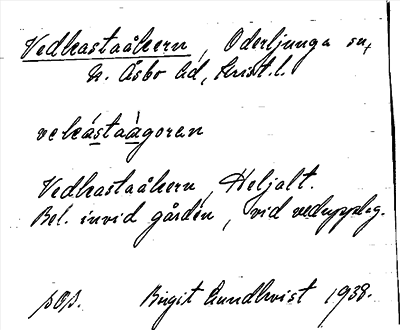 Vedkastaåkern, Oderljunga sn,
N. Åsbo hd, Krist. l.
vekástaàgoren
Vedkastaåkern, Heljalt.
Bel. invid gården, vid vedupplag.
Birgit Lundkvist 1938.